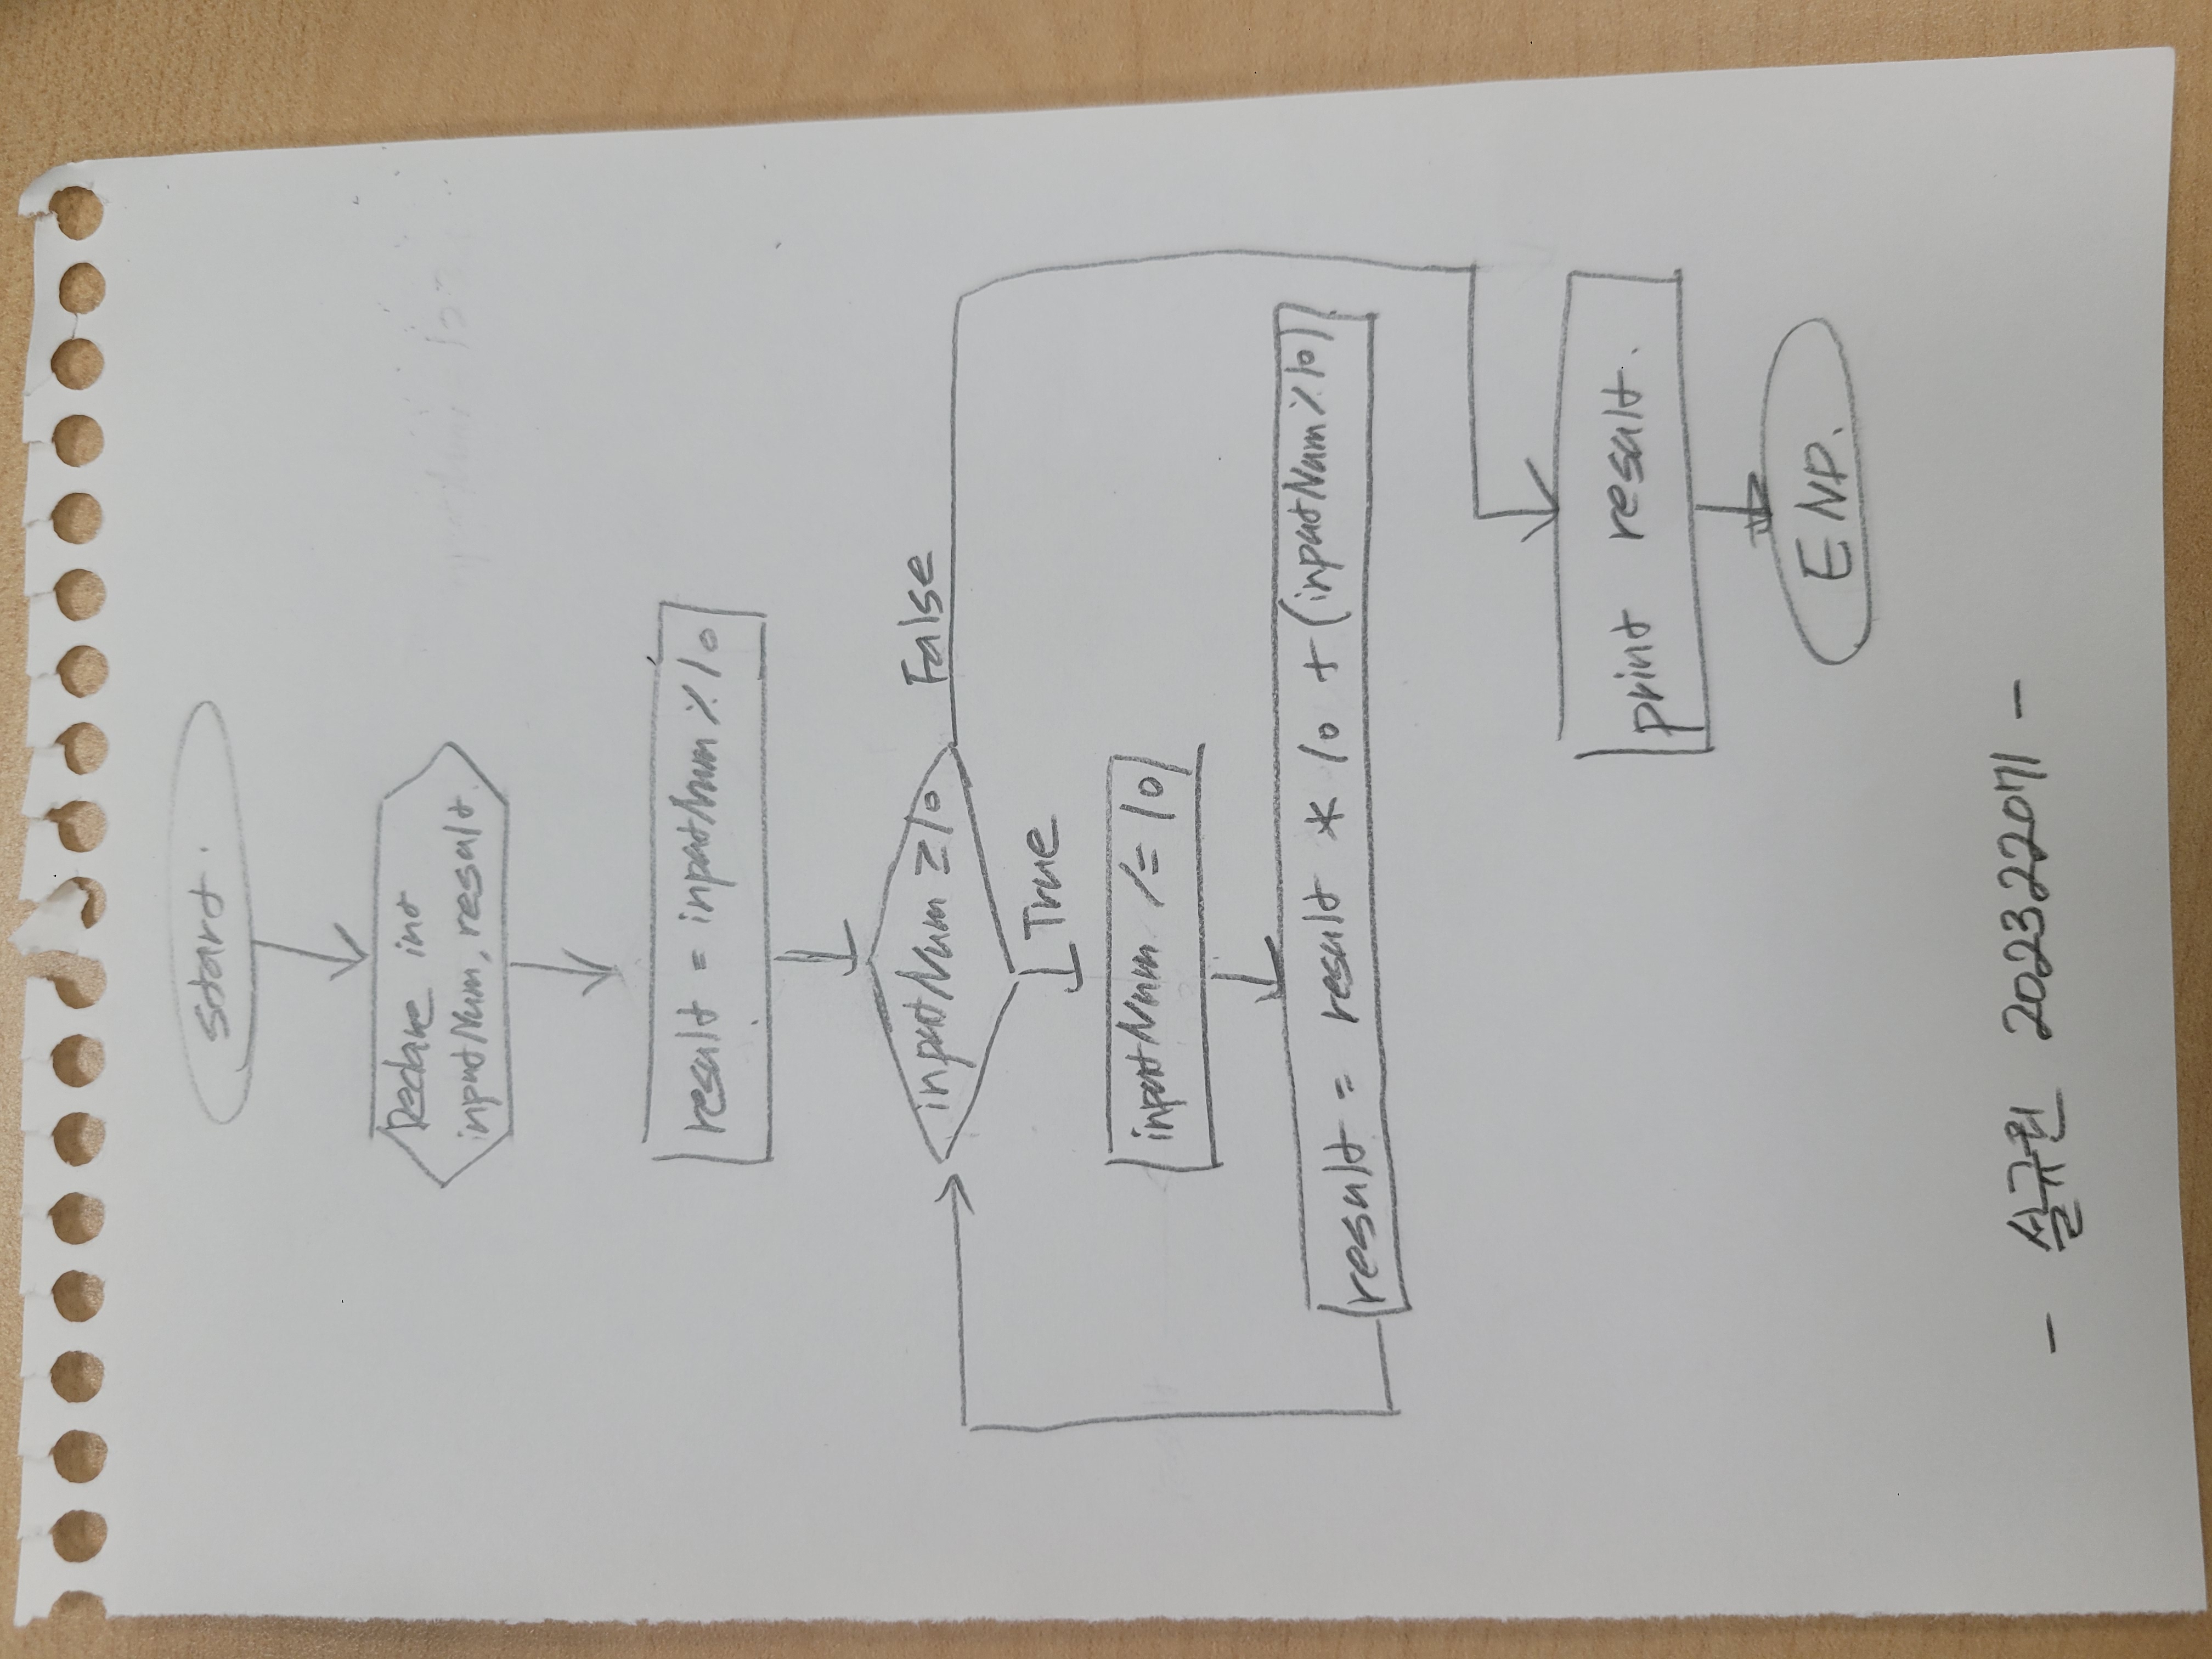 start.
Declare int
inputNum, result.
result = inputNum % 10
inputNum ≥ 10
False
True
inputNum /= 10
result = result * 10 + (inputNum % 10)
print result.
END.
- 설규원 202322071 -